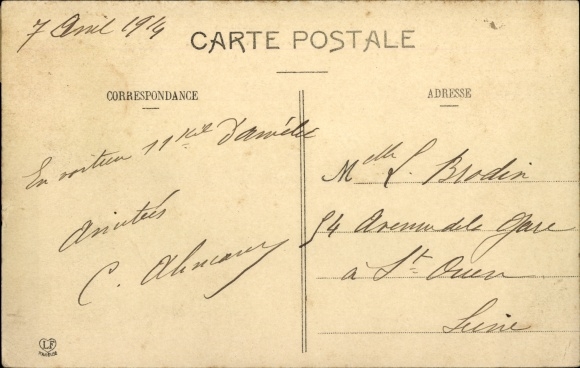 7 Avril 1914
CARTE POSTALE
CORRESPONDANCE
ADRESSE
En 11
Amitiés
C.
Melle L. Brodin
54 Avenue de la Gare
à St Ouen
Seine
LF